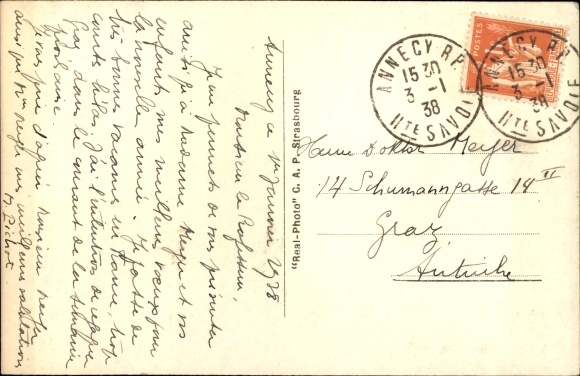 Annecy ce 1er Janvier 1938
Monsieur le Professeur,
Je me permets de vous présenter
ainsi qu'à Madame Meyer et vos
enfants mes meilleurs voeux pour
la nouvelle année. Je passe de
très bonnes vacances en France, trop
courtes hélas! J'ai l'intention de regagner
Graz dans le courant de la semaine
prochaine.
Je vous prie d'agréer Monsieur Meyer
ainsi que mes meilleures salutations
M Pichot
"Real-Photo" C. A. P. Strasbourg
POSTES
ANNECY R.P.
15 30
3 -1
38
Hte SAVOIE
ANNECY R.P.
15 30
3 -1
38
Hte SAVOIE
Herrn Doktor Meyer
14 Schumanngasse 14 II
Graz
Autriche